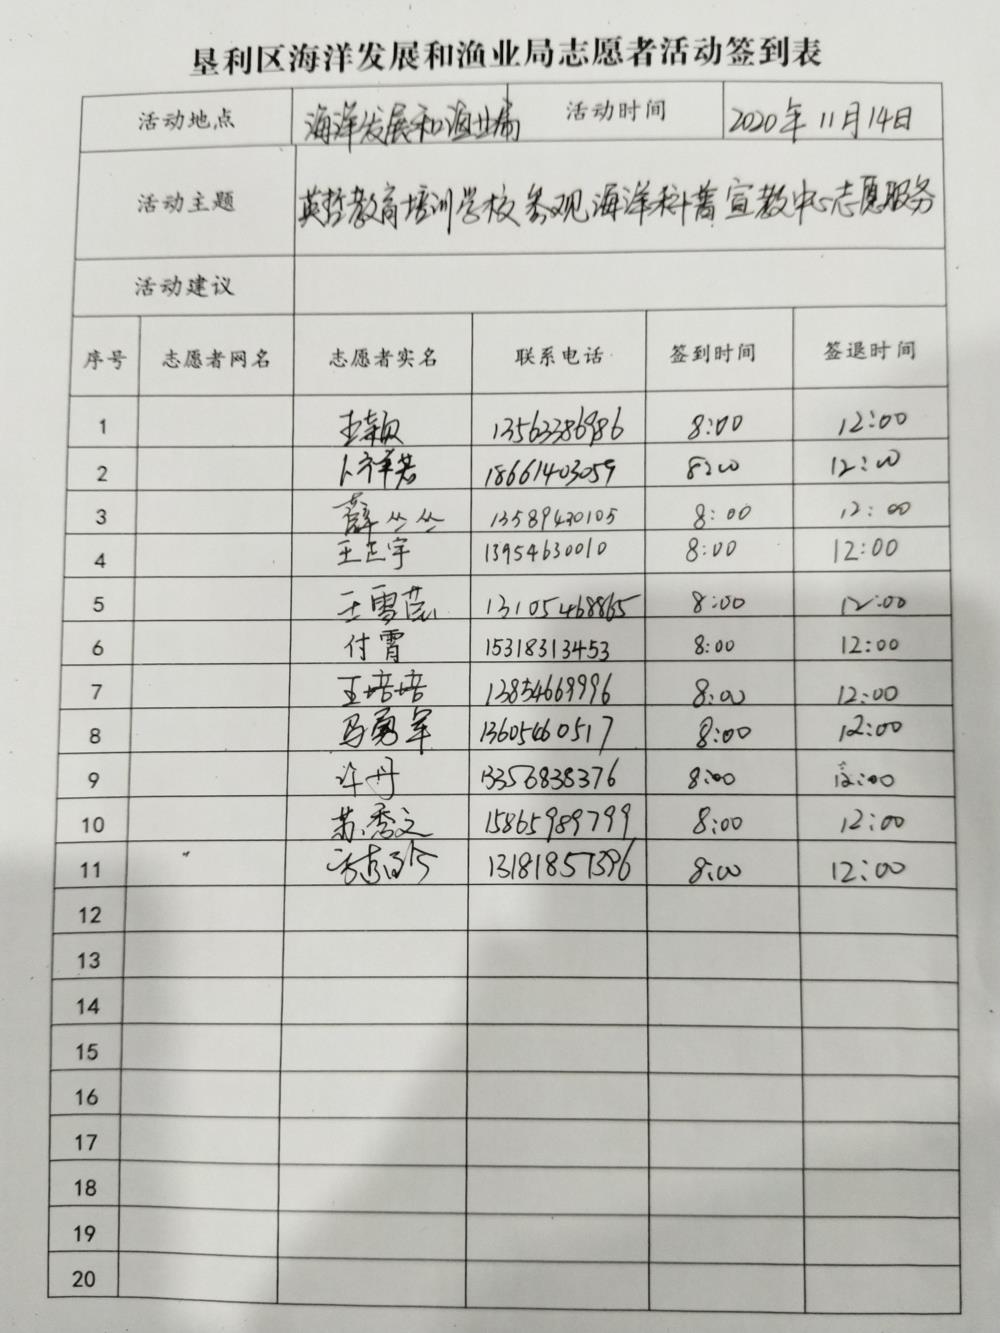 垦利区海洋发展和渔业局志愿者活动签到表
活动地点 海洋发展和渔业局 活动时间 2020年11月14日
活动主题 英哲教育培训学校参观海洋科普宣教中心志愿服务
活动建议
序号 志愿者网名 志愿者实名 联系电话 签到时间 签退时间
1 王颖 13563386986 8:00 12:00
2 卜祥君 18661403059 8:00 12:00
3 薛丛丛 13589430105 8:00 12:00
4 王正宇 13954630010 8:00 12:00
5 王雪莲 13105468865 8:00 12:00
6 付霄 15318313453 8:00 12:00
7 王培培 13854669996 8:00 12:00
8 马勇军 13605460517 8:00 12:00
9 许丹 13356838376 8:00 12:00
10 苏秀文 15865989799 8:00 12:00
11 13181857396 8:00 12:00
12
13
14
15
16
17
18
19
20